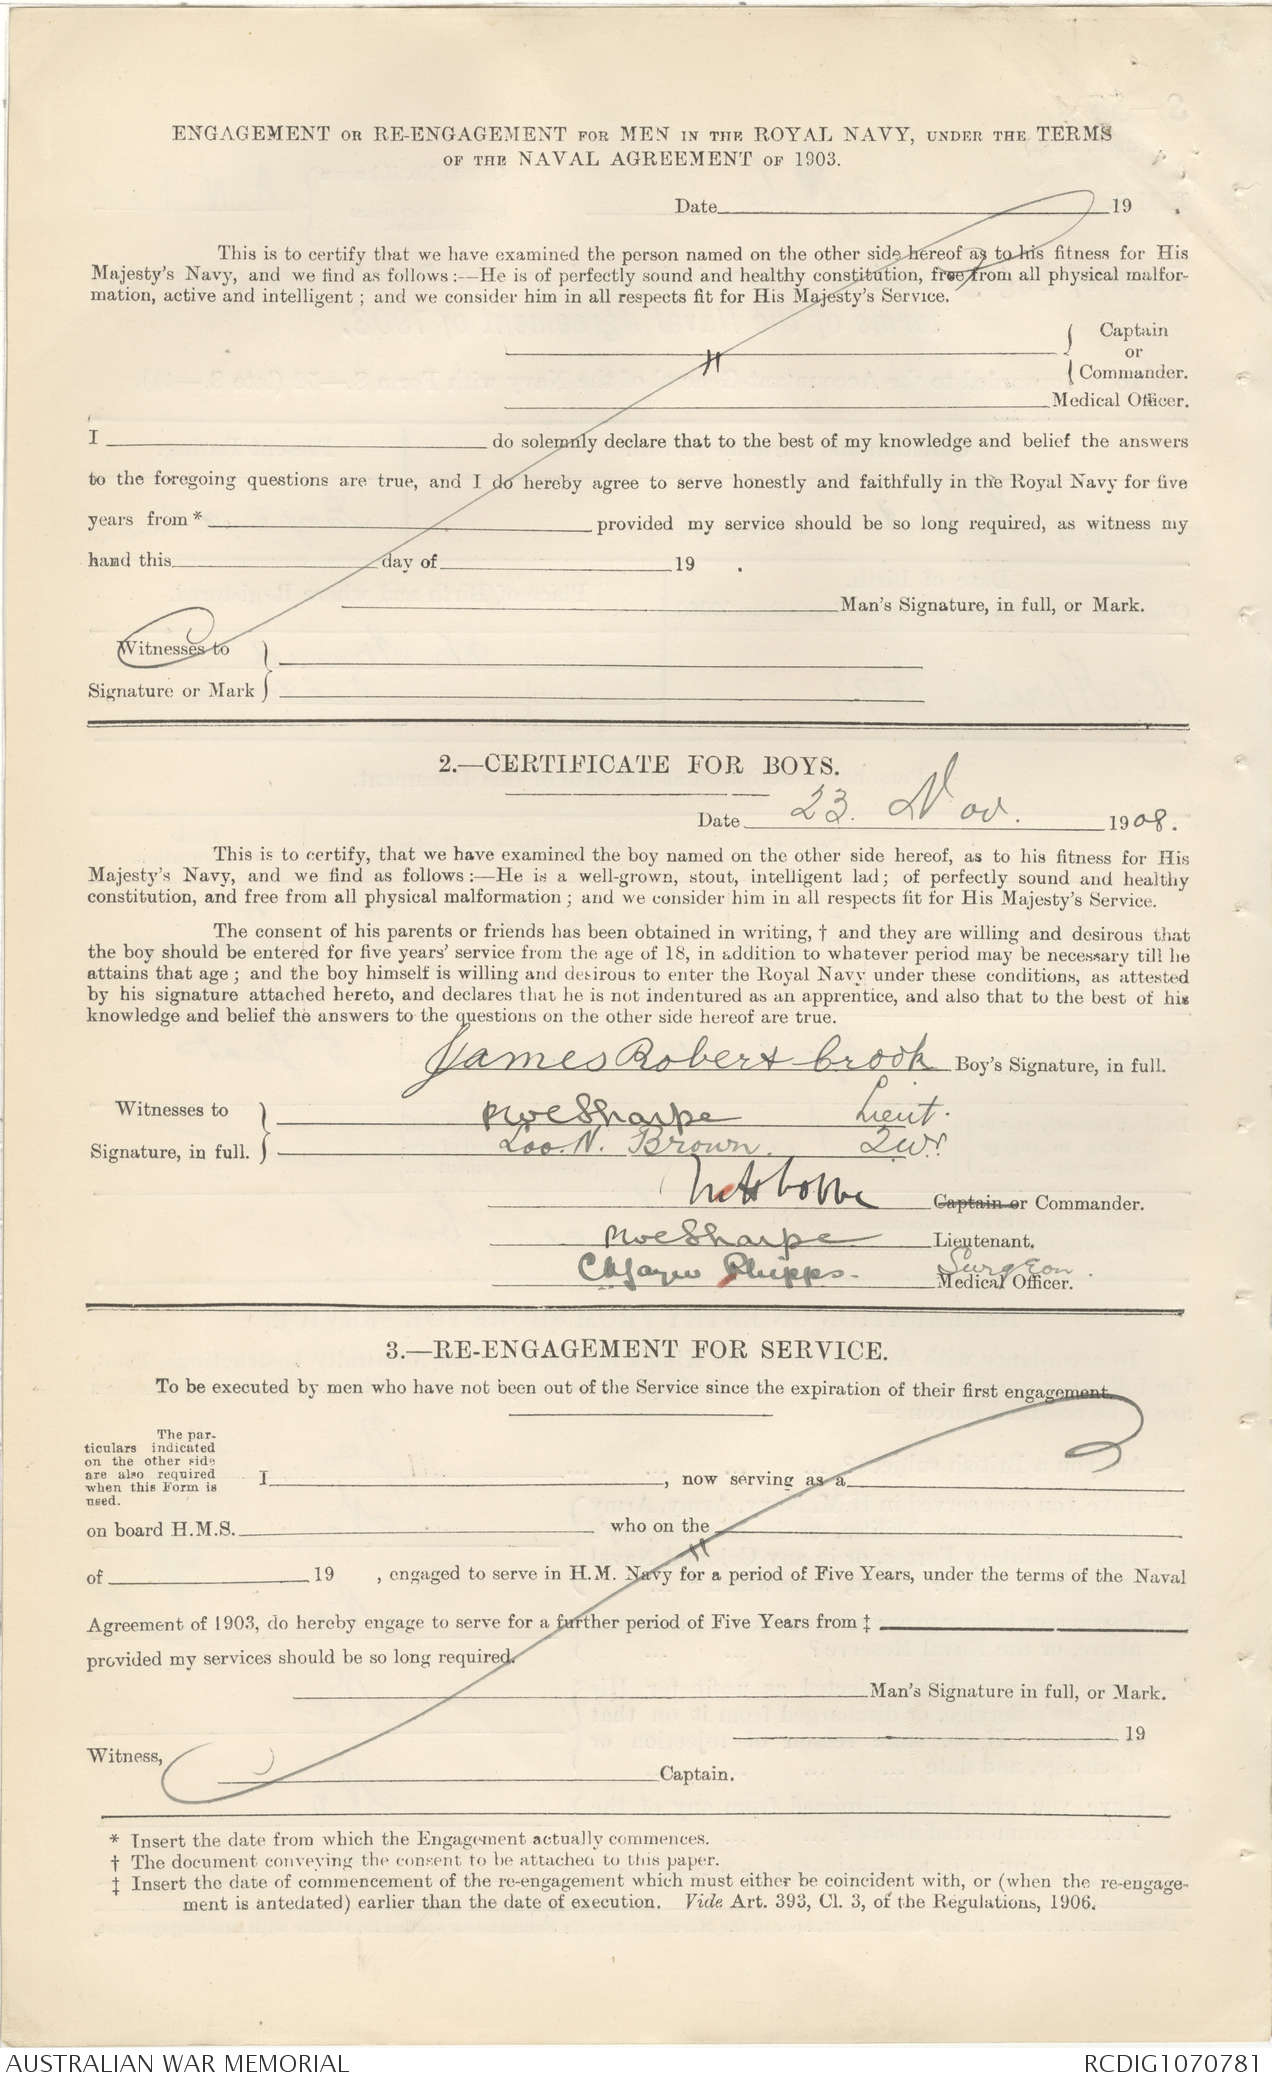 ENGAGEMENT OR RE-ENGAGEMENT FOR MEN IN THE ROYAL NAVY, UNDER THE TERMS
OF THE NAVAL AGREEMENT OF 1903.
Date 19 .
This is to certify that we have examined the person named on the other side hereof as to his fitness for His
Majesty's Navy, and we find as follows :—He is of perfectly sound and healthy constitution, free from all physical malfor-
mation, active and intelligent ; and we consider him in all respects fit for His Majesty's Service.
Captain
or
Commander.
Medical Officer.
I do solemnly declare that to the best of my knowledge and belief the answers
to the foregoing questions are true, and I do hereby agree to serve honestly and faithfully in the Royal Navy for five
years from * provided my service should be so long required, as witness my
hand this day of 19 .
Man's Signature, in full, or Mark.
Witnesses to
Signature or Mark
2.—CERTIFICATE FOR BOYS.
Date 23. Nov. 1908.
This is to certify, that we have examined the boy named on the other side hereof, as to his fitness for His
Majesty's Navy, and we find as follows :—He is a well-grown, stout, intelligent lad ; of perfectly sound and healthy
constitution, and free from all physical malformation ; and we consider him in all respects fit for His Majesty's Service.
The consent of his parents or friends has been obtained in writing, † and they are willing and desirous that
the boy should be entered for five years' service from the age of 18, in addition to whatever period may be necessary till he
attains that age ; and the boy himself is willing and desirous to enter the Royal Navy under these conditions, as attested
by his signature attached hereto, and declares that he is not indentured as an apprentice, and also that to the best of his
knowledge and belief the answers to the questions on the other side hereof are true.
James Robert Crook Boy's Signature, in full.
Witnesses to Sharpe Lieut.
Signature, in full. N. Brown.
Captain or Commander.
Sharpe Lieutenant.
Phipps. Surgeon
Medical Officer.
3.—RE-ENGAGEMENT FOR SERVICE.
To be executed by men who have not been out of the Service since the expiration of their first engagement.
The par-
ticulars indicated
on the other side
are also required
when this Form is
used.
I , now serving as a
on board H.M.S. who on the
of 19 , engaged to serve in H.M. Navy for a period of Five Years, under the terms of the Naval
Agreement of 1903, do hereby engage to serve for a further period of Five Years from ‡
provided my services should be so long required.
Man's Signature in full, or Mark.
19
Witness,
Captain.
* Insert the date from which the Engagement actually commences.
† The document conveying the consent to be attached to this paper.
‡ Insert the date of commencement of the re-engagement which must either be coincident with, or (when the re-engage-
ment is antedated) earlier than the date of execution. Vide Art. 393, Cl. 3, of the Regulations, 1906.
AUSTRALIAN WAR MEMORIAL
RCDIG1070781